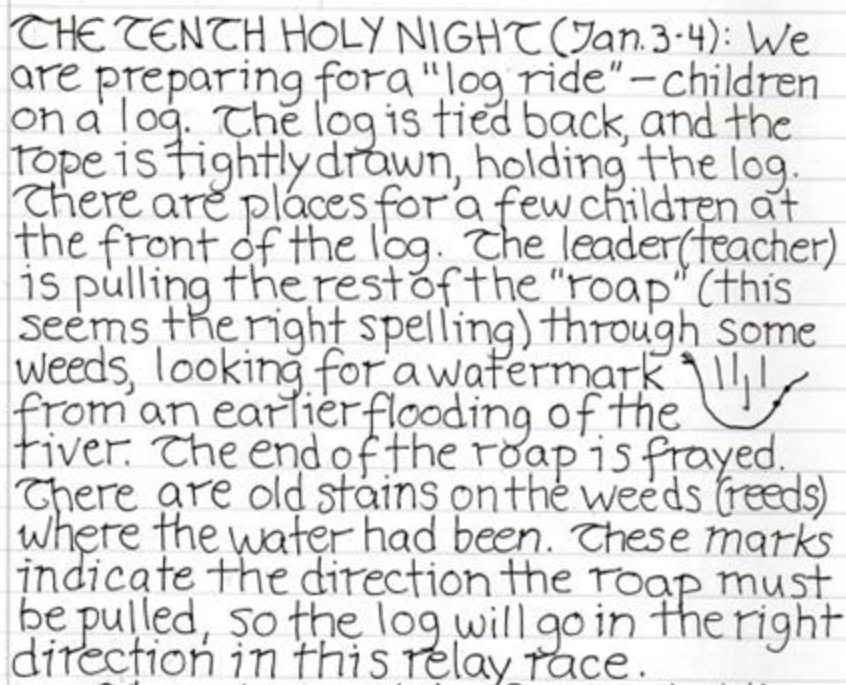 THE TENTH HOLY NIGHT (Jan. 3-4): We
are preparing for a "log ride" – children
on a log. The log is tied back, and the
rope is tightly drawn, holding the log.
There are places for a few children at
the front of the log. The leader (teacher)
is pulling the rest of the "roap" (this
seems the right spelling) through some
weeds, looking for a watermark
from an earlier flooding of the
river. The end of the roap is frayed.
There are old stains on the weeds (reeds)
where the water had been. These marks
indicate the direction the roap must
be pulled, so the log will go in the right
direction in this relay race.